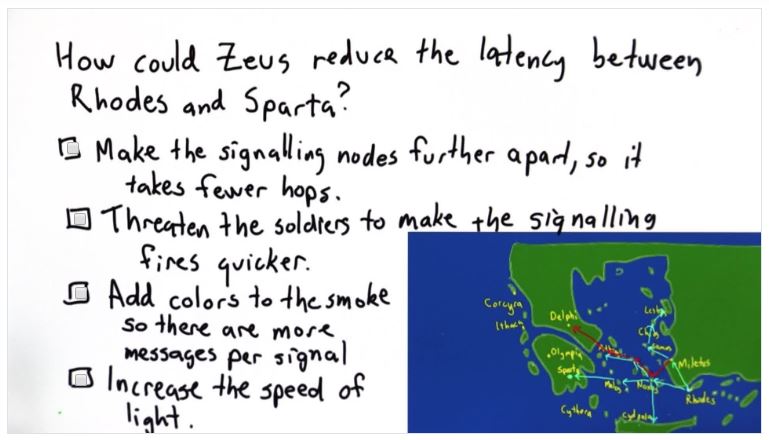 How could Zeus reduce the latency between
Rhodes and Sparta?
Make the signalling nodes further apart, so it
takes fewer hops.
Threaten the soldiers to make the signalling
fires quicker.
Add colors to the smoke
so there are more
messages per signal
Increase the speed of
light.
Corcyra
Ithaca
Delphi
Olympia
Sparta
Miletos
Naxos
Rhodes
Cythera